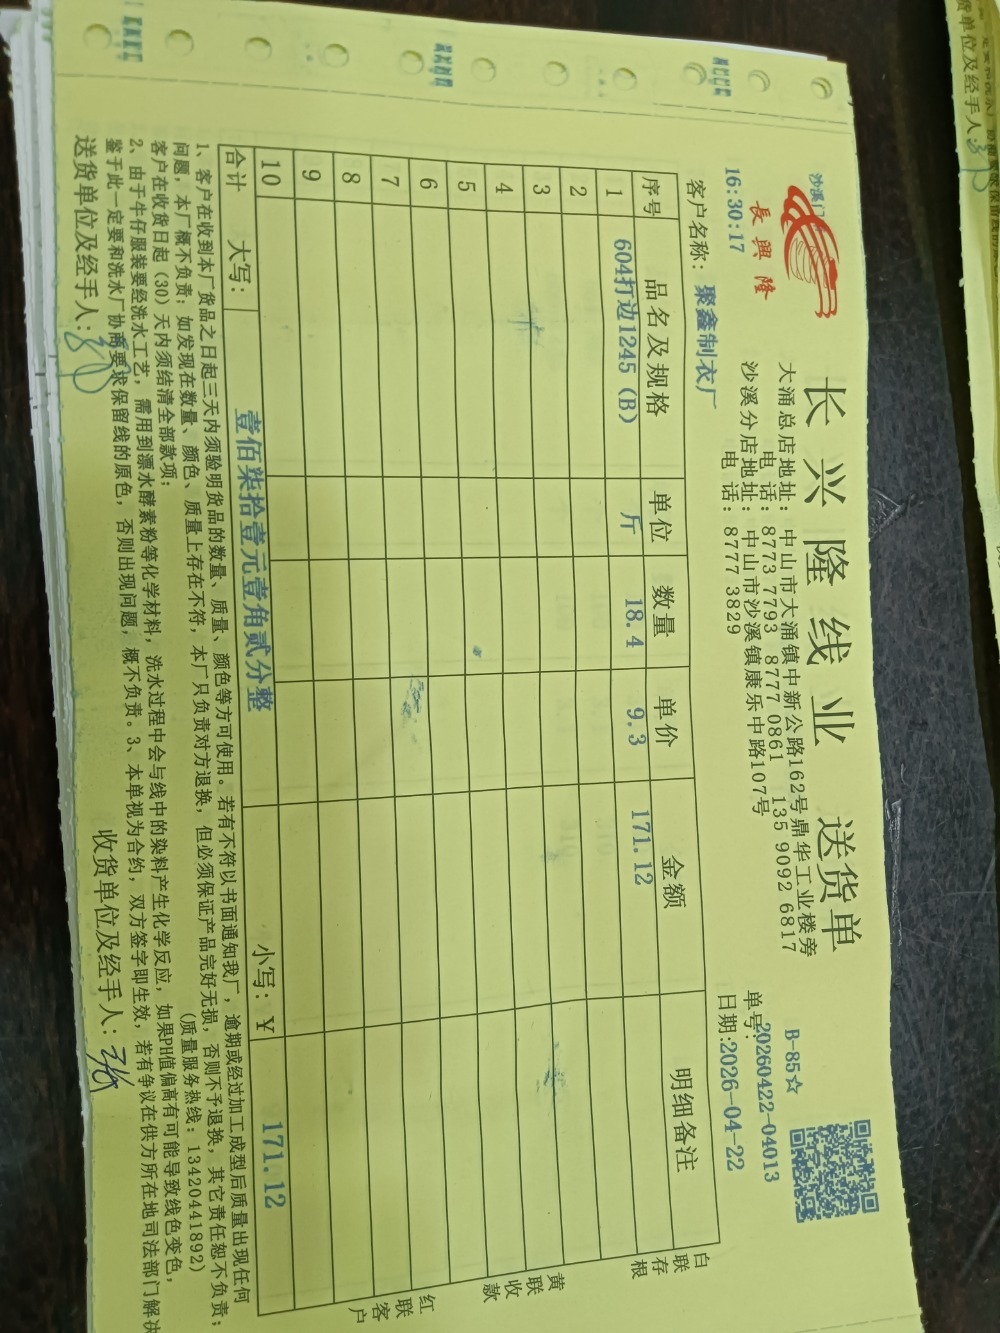 沙溪门
長興隆
长兴隆线业 送货单
大涌总店地址：中山市大涌镇中新公路162号鼎华工业楼旁
电 话：8773 7793 8777 0861 135 9092 6817
沙溪分店地址：中山市沙溪镇康乐中路107号
电 话：8777 3829
B-85☆
单号：20260422-04013
日期：2026-04-22
16:30:17
客户名称：聚鑫制衣厂
序号 品名及规格 单位 数量 单价 金额 明细备注
1 604打边1245（B） 斤 18.4 9.3 171.12
2
3
4
5
6
7
8
9
10
合计 大写：壹佰柒拾壹元壹角贰分整 小写：¥ 171.12
白联存根
黄联收款
红联客户
1、客户在收到本厂货品之日起三天内须验明货品的数量、质量、颜色等方可使用。若有不符以书面通知我厂，逾期或经过加工成型后质量出现任何
问题，本厂概不负责；如发现在数量、颜色、质量上存在不符，本厂只负责对方退换，但必须保证产品完好无损，否则不予退换，其它责任恕不负责；
客户在收货日起（30）天内须结清全部款项； （质量服务热线：13420441892）
2、由于牛仔服装要经洗水工艺，需用到漂水酵素粉等化学材料，洗水过程中会与线中的染料产生化学反应，如果PH值偏高有可能导致线色变色，
鉴于此一定要和洗水厂协商要求保留线的原色，否则出现问题，概不负责。3、本单视为合约，双方签字即生效，若有争议在供方所在地司法部门解决
送货单位及经手人： 收货单位及经手人：
货单位及经手人：